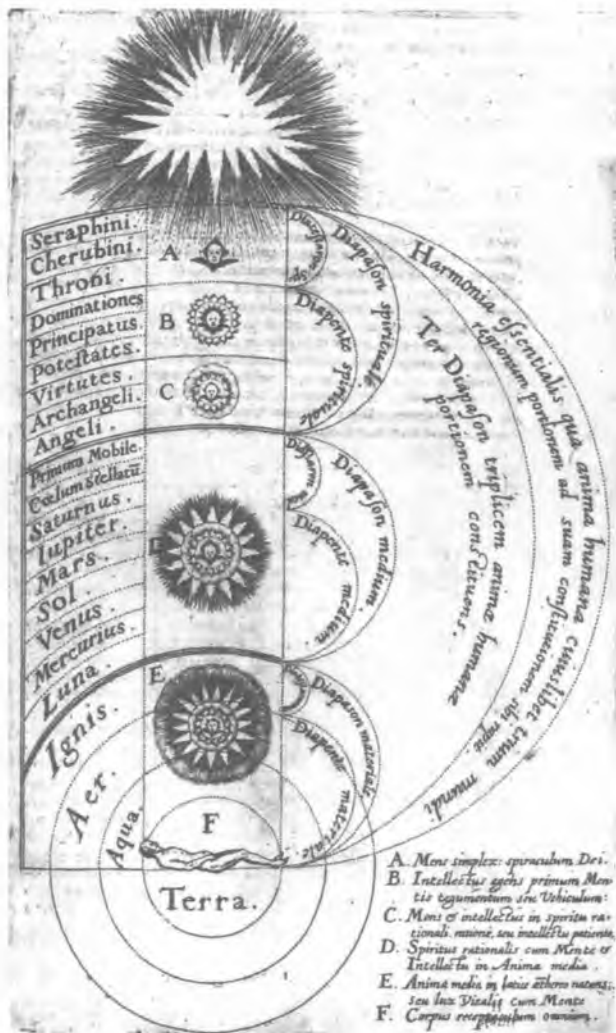 Seraphini.
Cherubini.
Throni.
Dominationes
Principatus.
Potestates.
Virtutes.
Archangeli.
Angeli.
Primum Mobile.
Cœlum Stellatū.
Saturnus.
Iupiter.
Mars.
Sol.
Venus.
Mercurius.
Luna.
Ignis.
Aer.
Aqua.
Terra.
A
B
C
D
E
F
Diapason spirituale.
Diapente spirituale
Diapason medium.
Diapente medium.
Diapason materiale
Diapente materiale
Ter Diapason triplicem animæ humanæ
portionem constituens.
Harmonia essentialis qua anima humana cuiuslibet trium mundi
regionum portionem ad suam constitutionem sibi rapit
A. Mens simplex: spiraculum Dei.
B. Intellectus agens primum Men-
tis tegumentum seu Vehiculum:
C. Mens & intellectus in spiritu ra-
tionali ratione, seu intellectu patiente,
D. Spiritus rationalis cum Mente &
Intellectu in Anima media.
E. Anima media in æthereo natans;
seu lux Vitalis cum Mente
F. Corpus receptaculum omnium.